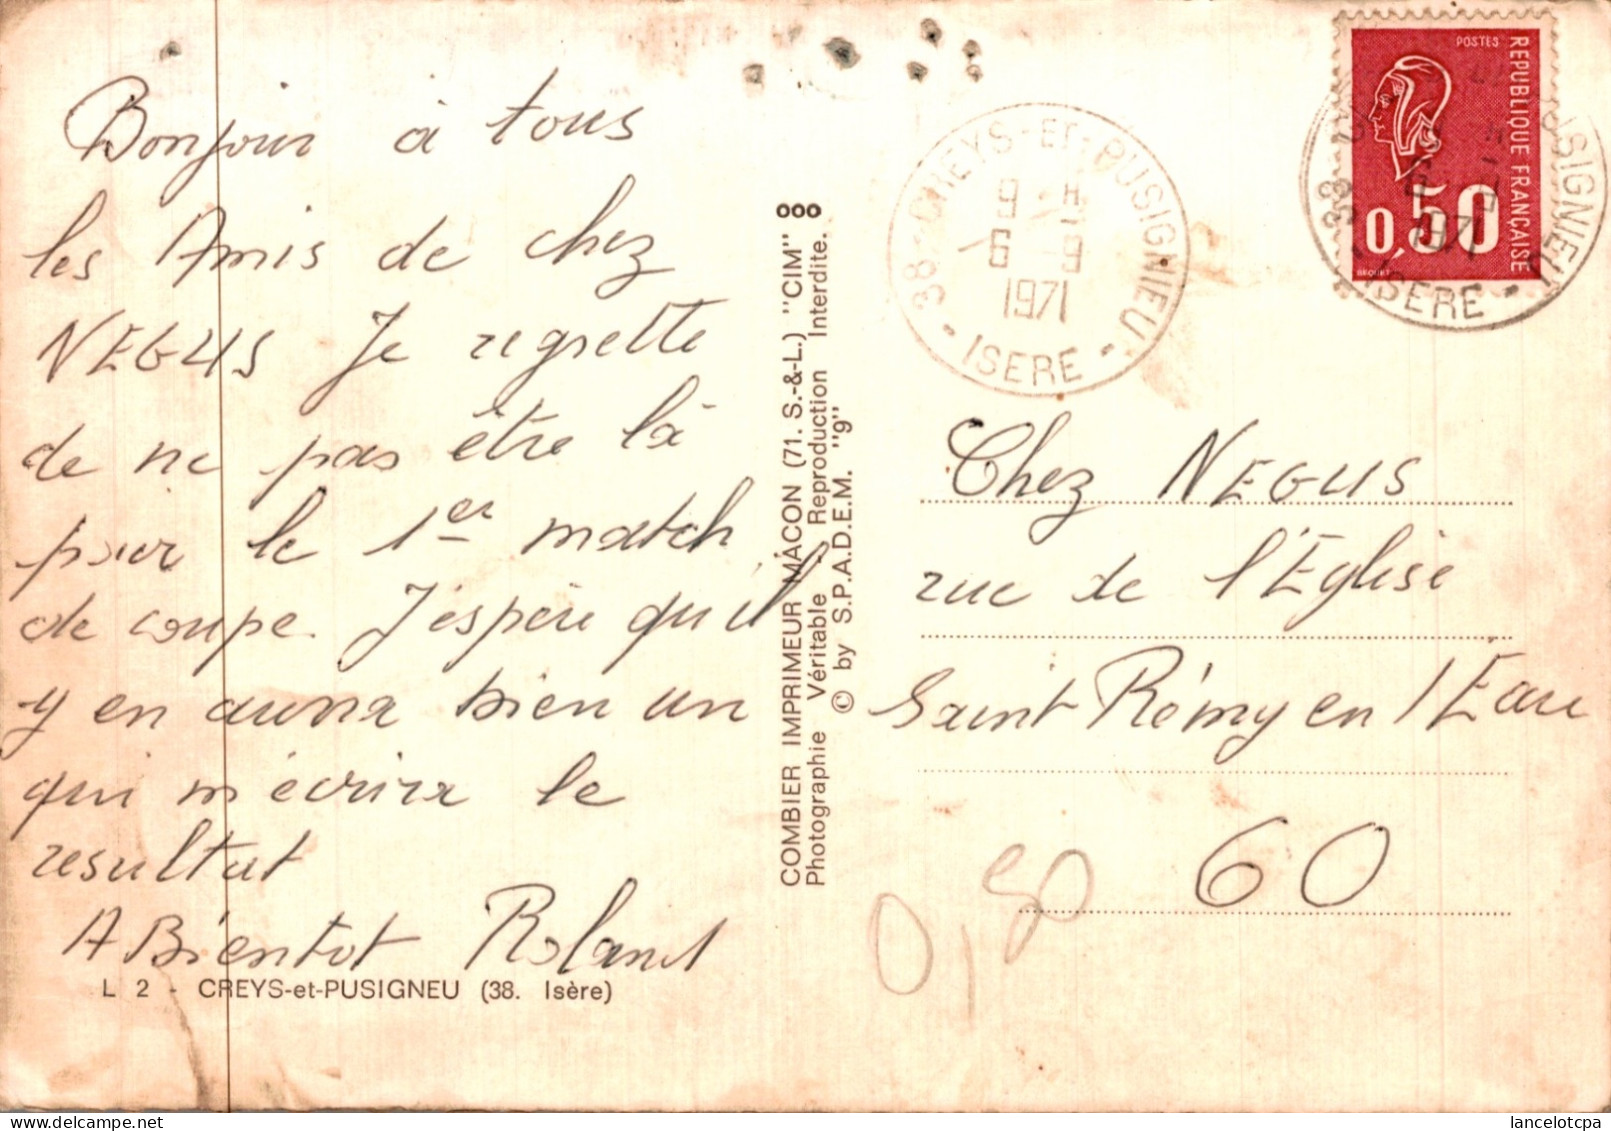 Bonjour à tous
les Amis de chez
NEGUS Je regrette
de ne pas être là
pour le 1er match
de coupe. J'espère qu'il
y en aura bien un
qui m'écrira le
resultat
A Bientot Roland
L 2 - CREYS-et-PUSIGNEU (38. Isère)
ooo
COMBIER IMPRIMEUR MÂCON (71. S.-&-L.) "CIM"
Photographie Véritable Reproduction Interdite.
© by S.P.A.D.E.M. "9"
38 - CREYS-ET-PUSIGNIEU
9 H
6 - 9
1971
- ISERE -
POSTES
REPUBLIQUE FRANÇAISE
0,50
BEQUET
1971
ISERE -
Chez NEGUS
rue de l'Eglise
Saint Rémy en l'Eau
60
0,80
lancelotcpa